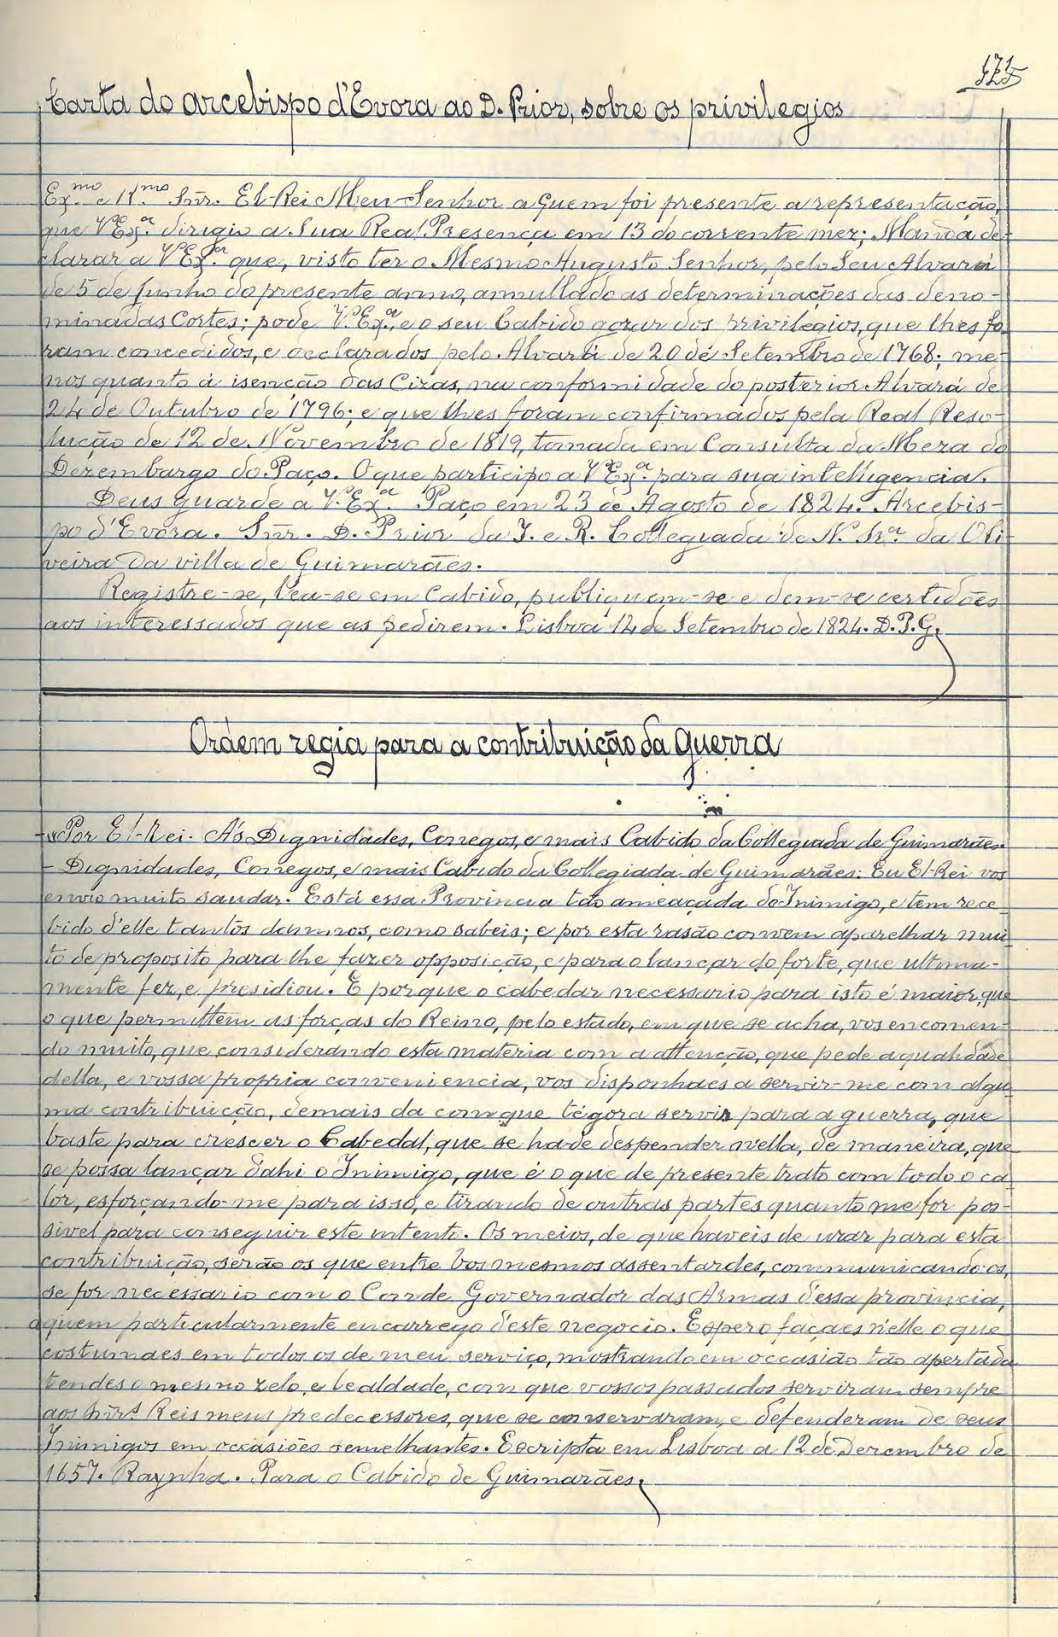 171
Carta do arcebispo d'Evora ao D. Prior, sobre os privilegios
Ex.mo e R.mo Snr. El-Rei Meu Senhor a quem foi presente a representação,
que V. Ex.a dirigio a Sua Real Presença em 13 do corrente mez; Manda de-
clarar a V. Ex.a que, visto ter o Mesmo Augusto Senhor, pelo Seu Alvará
de 5 de Junho do presente anno, annullado as determinações das deno-
minadas Cortes; pode V. Ex.a, e o seu Cabido gozar dos privilegios, que lhes fo-
ram concedidos, e declarados pelo Alvará de 20 de Setembro de 1768; me-
nos quanto á isenção das Cizas, na conformidade do posterior Alvará de
24 de Outubro de 1796; e que lhes foram confirmados pela Real Reso-
lução de 12 de Novembro de 1819, tomada em Consulta da Meza do
Dezembargo do Paço. O que participo a V. Ex.a para sua intelligencia.
Deus guarde a V. Ex.a Paço em 23 de Agosto de 1824. Arcebis-
po d'Evora. Snr. D. Prior da I. e R. Collegiada de N. Sr.a da Oli-
veira da villa de Guimarães.
Registre-se, lea-se em Cabido, publiquem-se e dem-se certidões
aos interessados que as pedirem. Lisboa 14 de Setembro de 1824. D. P. G.
Ordem regia para a contribuição da guerra
"Por El-Rei. Ás Dignidades, Conegos, e mais Cabido da Collegiada de Guimarães.
- Dignidades, Conegos, e mais Cabido da Collegiada de Guimarães: Eu El-Rei vos
envio muito saudar. Está essa Provincia tão ameaçada do Inimigo, e tem rece-
bido d'elle tantos damnos, como sabeis; e por esta rasão convem aparelhar mui-
to de proposito para lhe fazer opposição, e para o lançar do forte, que ultima-
mente fez, e presidiou. E porque o cabedar necessario para isto é maior, que
o que permittem as forças do Reino, pelo estado, em que se acha, vos encomen-
do muito, que considerando esta materia com a attenção, que pede a qualidade
della, e vossa propria conveniencia, vos disponhaes a servir-me com algu-
ma contribuição, demais da com que tégora servis para a guerra, que
baste para crescer o Cabedal, que se hade despender nella, de maneira, que
se possa lançar dahi o Inimigo, que é o que de presente trato com todo o ca-
lor, esforçando-me para isso, e tirando de outras partes quanto me for pos-
sivel para conseguir este intento. Os meios, de que haveis de uzar para esta
contribuição, serão os que entre vos mesmos assentardes, communicando-os,
se for necessario com o Conde Governador das Armas d'essa provincia,
a quem particularmente encarrego d'este negocio. Espero façaes n'elle o que
costumaes em todos os de meu serviço, mostrando em occasião tão apertada
tendes o mesmo zelo, e lealdade, com que vossos passados serviram sempre
aos Snrs Reis meus predecessores, que se conservaram, e defenderam de seus
Inimigos em occasiões semelhantes. Escripta em Lisboa a 12 de Dezembro de
1657. Raynha. Para o Cabido de Guimarães.